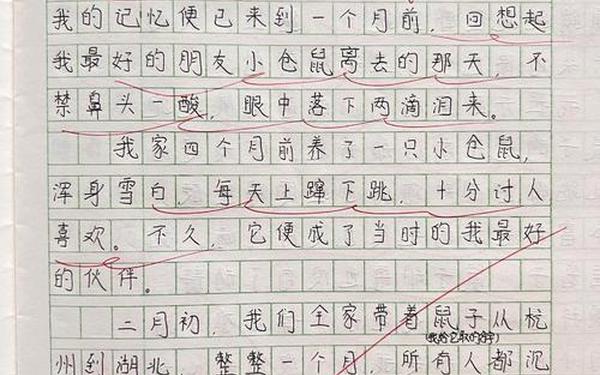 我的记忆便已来到一个月前，回想起
我最好的朋友小仓鼠离去的那天，不
禁鼻头一酸，眼中落下两滴泪来。
我家四个月前养了一只小仓鼠，
浑身雪白，每天上蹿下跳，十分讨人
喜欢。不久，它便成了当时的我最好
的伙伴。
二月初，我们全家带着鼠子从杭
(我给它取的名字)
州到湖北，整整一个月，所有人都沉